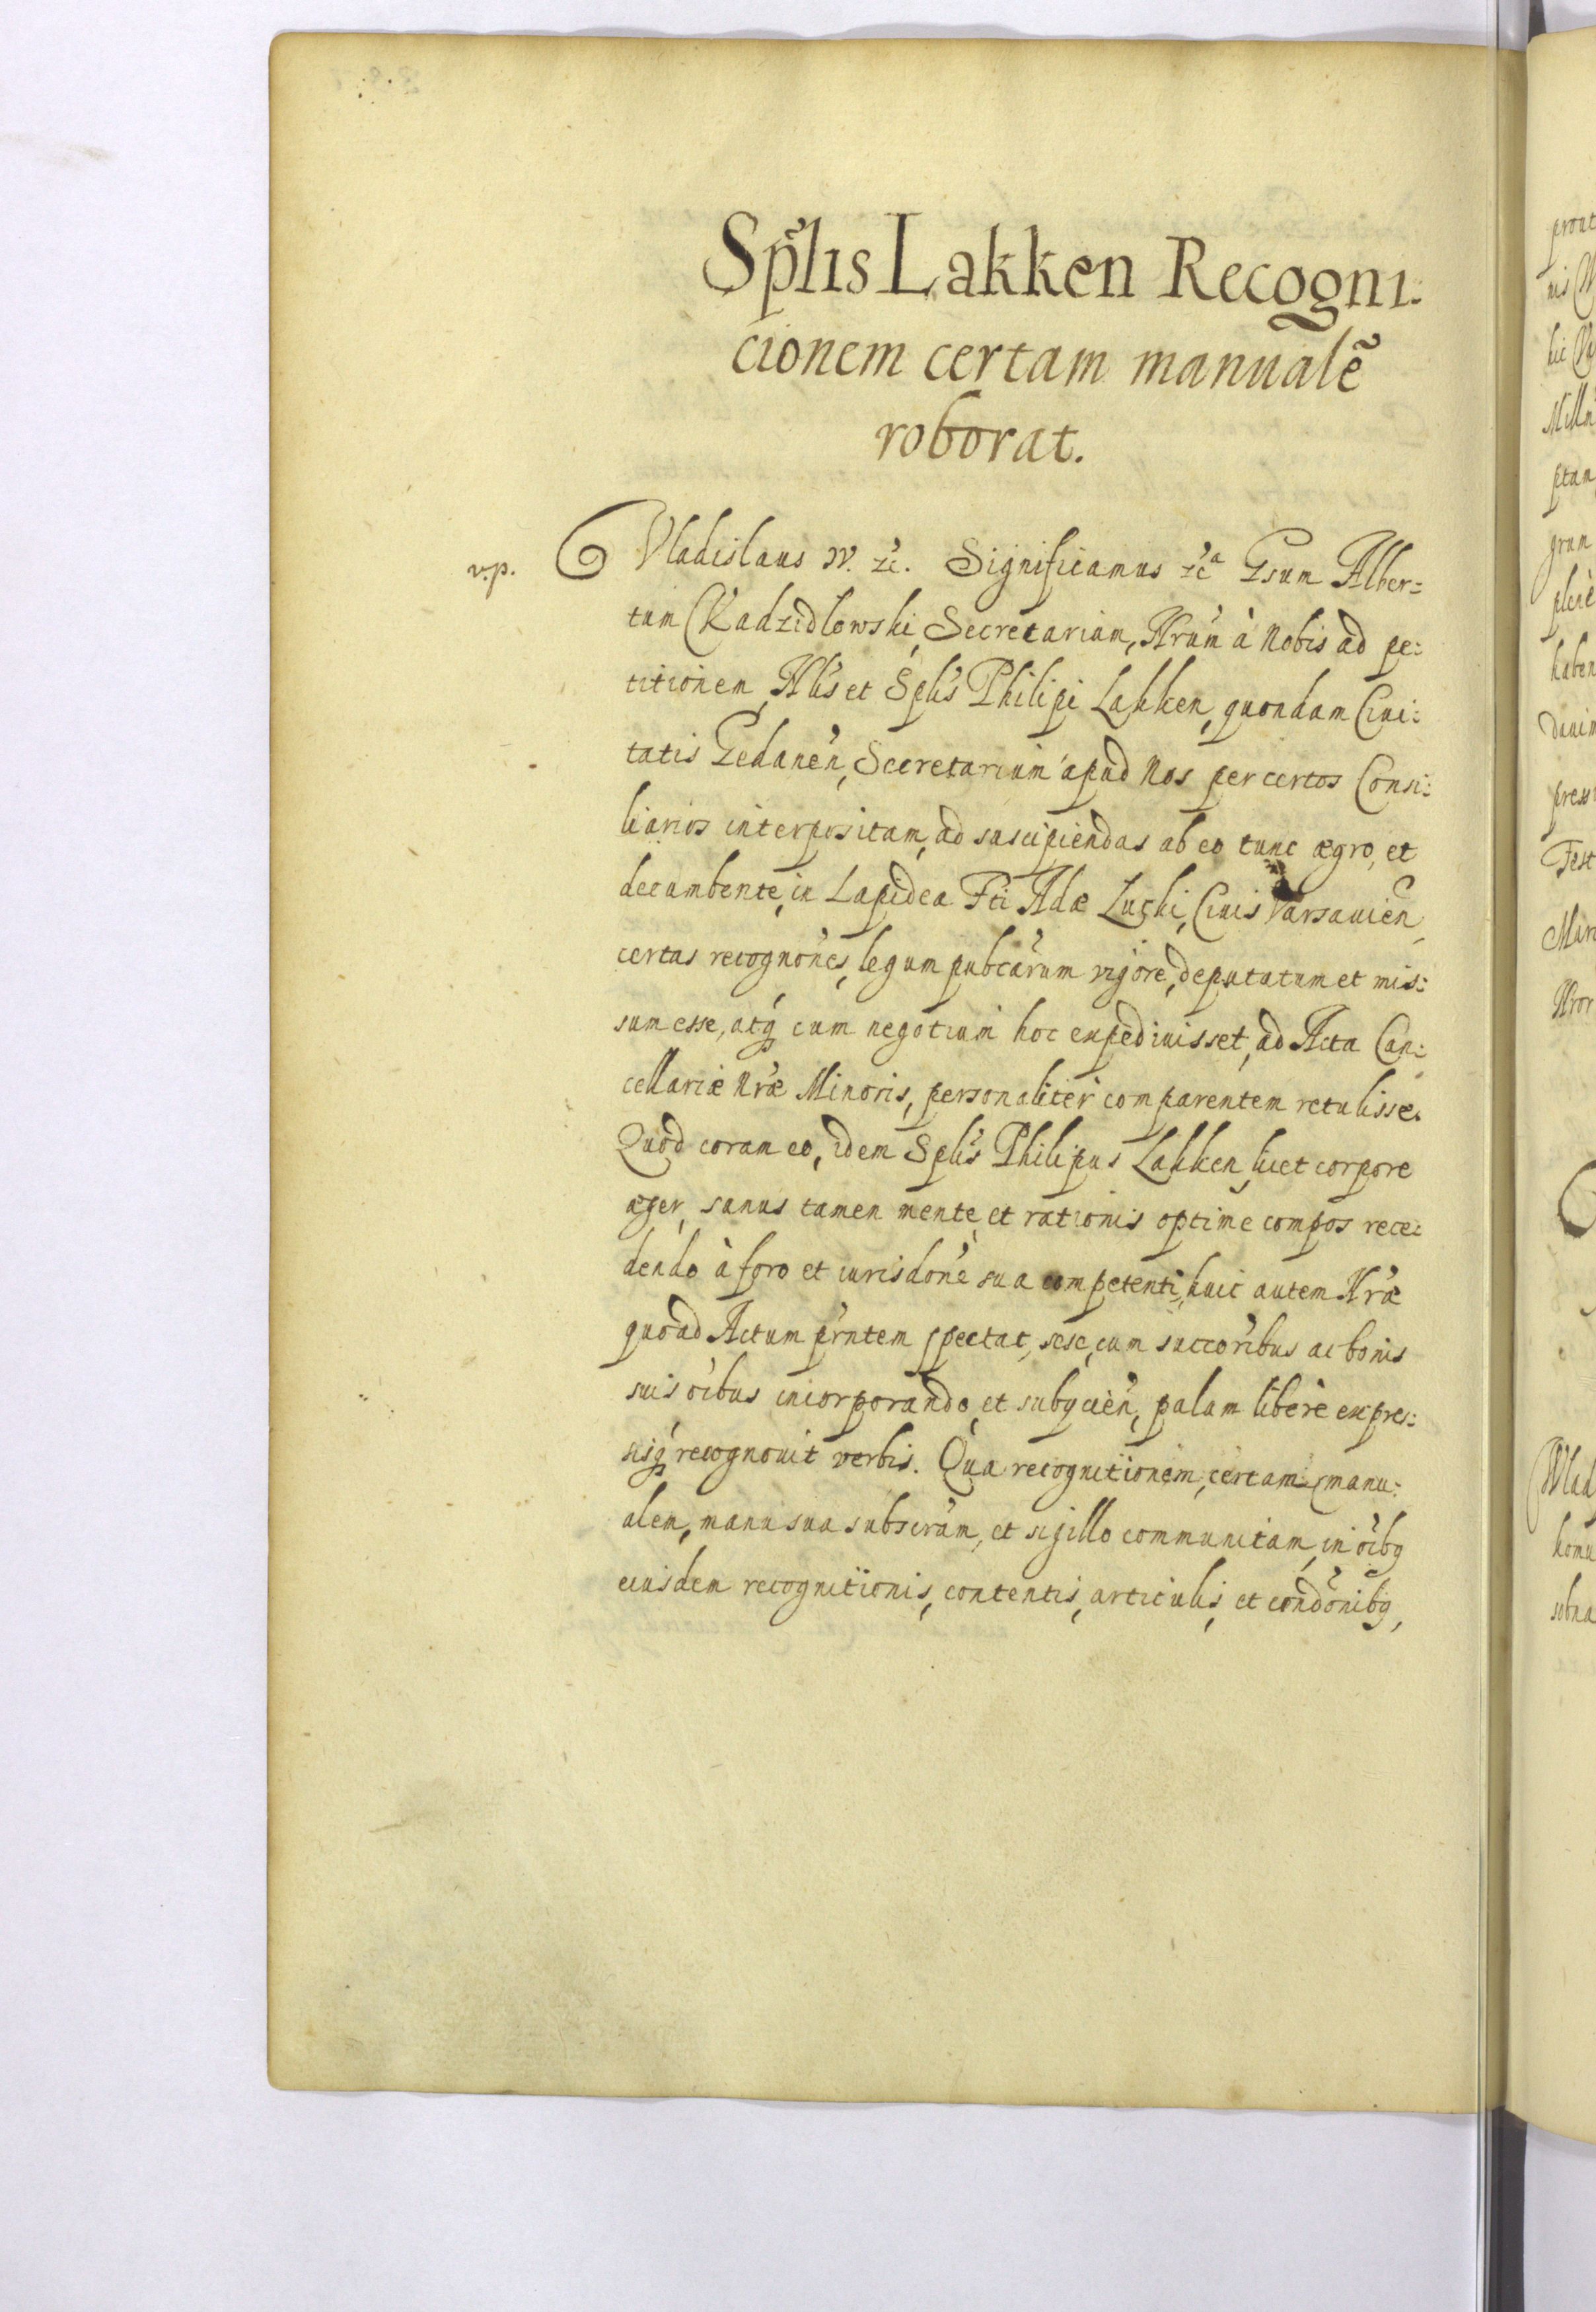 Sp̃lis Lakken Recogni:
cionem certam manualẽ
roborat.
v.p. Vladislaus IV. etc. Significamus etcª Gsum Alber=
tum Kadzidlowski, Secretarium, Nrũm à Nobis ad pe:
titionem, Nlis et Splis Philipi Lakken, quondam Ciui:
tatis Gedanen̄, Secretarium apud Nos per certos Consi:
liarios interpositam, ad suscipiendas ab eo tunc ægro, et
decumbente, in Lapidea Fti Adæ Luski, Ciuis Varsauien̄,
certas recognões, legum pubcarum vigore, deputatum et mis:
sum esse, atq cum negotium hoc expediuisset, ad Acta Can:
cellariæ Nræ Minoris, personaliter comparentem retulisse.
Quod coram eo, idem Splis Philipus Lakken, licet corpore
æger, sanus tamen mente, et rationis optime compos rece:
dendo à foro et iurisdone sua competenti, huic autem Nræ
quoad Actum prntem spectat, sese, cum succoribus ac bonis
suis oibus incorporando, et subycien̄, palam liberè expres:
sisq recognouit verbis. Qua recognitionem, certam manu:
alem, manu sua subscram, et sigillo communitam, in oibq
eiusdem recognitionis, contentis, articulis, et condonibq,